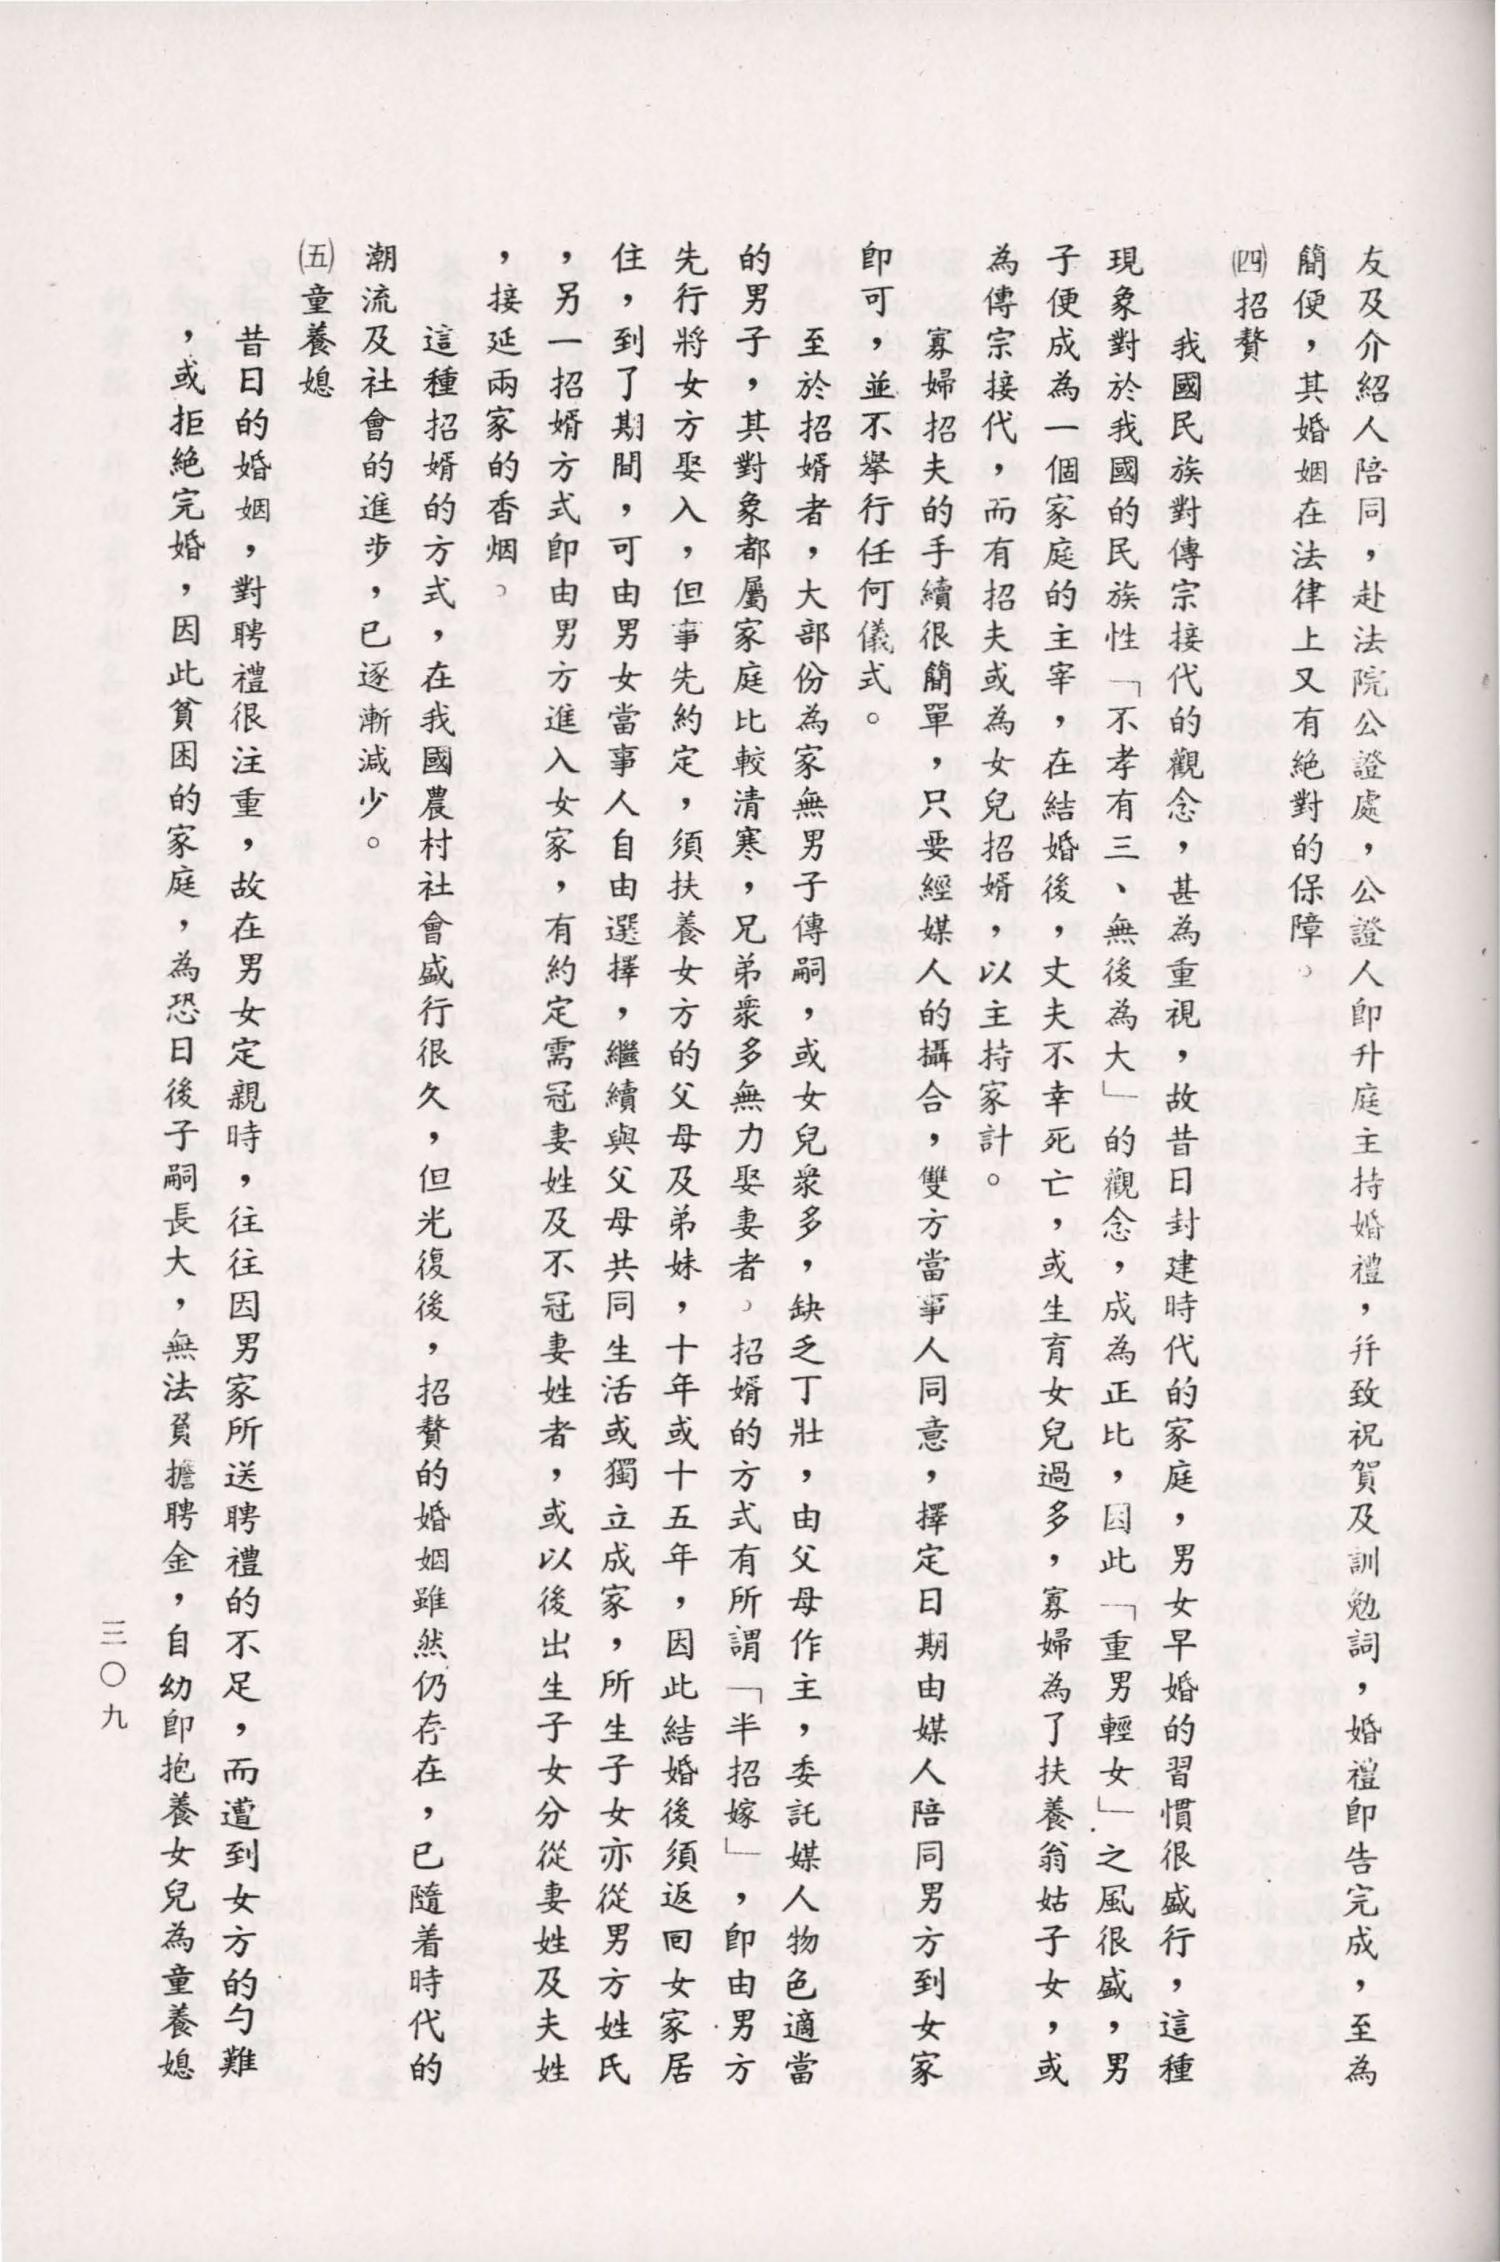 友及介紹人陪同，赴法院公證處，公證人即升庭主持婚禮，并致祝賀及訓勉詞，婚禮即告完成，至為
簡便，其婚姻在法律上又有絕對的保障。
㈣招贅
我國民族對傳宗接代的觀念，甚為重視，故昔日封建時代的家庭，男女早婚的習慣很盛行，這種
現象對於我國的民族性「不孝有三、無後為大」的觀念，成為正比，因此「重男輕女」之風很盛，男
子便成為一個家庭的主宰，在結婚後，丈夫不幸死亡，或生育女兒過多，寡婦為了扶養翁姑子女，或
為傳宗接代，而有招夫或為女兒招婿，以主持家計。
寡婦招夫的手續很簡單，只要經媒人的攝合，雙方當事人同意，擇定日期由媒人陪同男方到女家
即可，並不舉行任何儀式。
至於招婿者，大部份為家無男子傳嗣，或女兒衆多，缺乏丁壯，由父母作主，委託媒人物色適當
的男子，其對象都屬家庭比較清寒，兄弟衆多無力娶妻者。招婿的方式有所謂「半招嫁」，即由男方
先行將女方娶入，但事先約定，須扶養女方的父母及弟妹，十年或十五年，因此結婚後須返回女家居
住，到了期間，可由男女當事人自由選擇，繼續與父母共同生活或獨立成家，所生子女亦從男方姓氏
，另一招婿方式即由男方進入女家，有約定需冠妻姓及不冠妻姓者，或以後出生子女分從妻姓及夫姓
，接延兩家的香烟。
這種招婿的方式，在我國農村社會盛行很久，但光復後，招贅的婚姻雖然仍存在，已隨着時代的
潮流及社會的進步，已逐漸減少。
㈤童養媳
昔日的婚姻，對聘禮很注重，故在男女定親時，往往因男家所送聘禮的不足，而遭到女方的勻難
，或拒絕完婚，因此貧困的家庭，為恐日後子嗣長大，無法貟擔聘金，自幼即抱養女兒為童養媳
三〇九